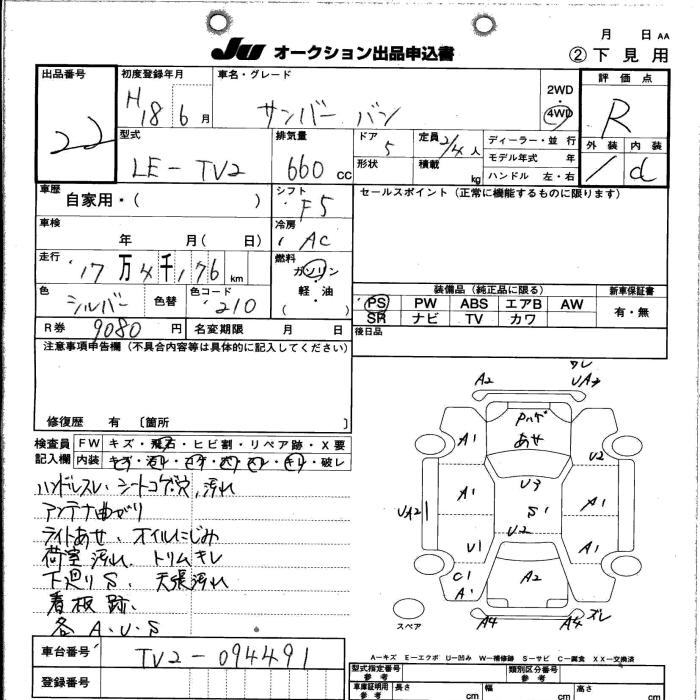 月 日 AA
JU オークション出品申込書 ②下見用
出品番号
22
初度登録年月
H18 6月
車名・グレード
サンバー バン
2WD・4WD
評価点
R
外装 内装
1 d
型式
LE-TV2
排気量
660 cc
ドア
5
形状
定員 2/4人
積載 kg
ディーラー・並行
モデル年式 年
ハンドル 左・右
車歴
自家用・( )
シフト
F5
セールスポイント (正常に機能するものに限ります)
車検
年 月( 日)
冷房
AC
走行
17万4千176 km
燃料
ガソリン・軽油
( )
色
シルバー 色替
色コード
210
装備品 (純正品に限る)
PS PW ABS エアB AW
SR ナビ TV カワ
新車保証書
有・無
R券 9080円
名変期限 月 日
後日品
注意事項申告欄 (不具合内容等は具体的に記入してください)
修復歴 有 〔箇所 〕
検査員記入欄
FW キズ・飛石・ヒビ割・リペア跡・X要
内装 キズ・汚レ・コゲ・穴・スレ・キレ・破レ
ハンドルスレ、シートコゲ穴、汚れ
アンテナ曲がり
ライトあせ、オイルにじみ
荷室汚れ、トリムキレ
下廻りS、天張汚れ
看板跡、
各A・U・S
ワレ
A2 UA3
Pハゲ
あせ
A1 U2
U3
A1 S1 A1
UA2
U2
U1 A1
C1 A2
A1
スペア
A4 A4 ズレ
A-キズ E-エクボ U-凹み W-補修跡 S-サビ C-腐食 XX-交換済
車台番号
TV2-094491
登録番号
型式指定番号
参考
類別区分番号
参考
車庫証明用
参考
長さ cm
幅 cm
高さ cm